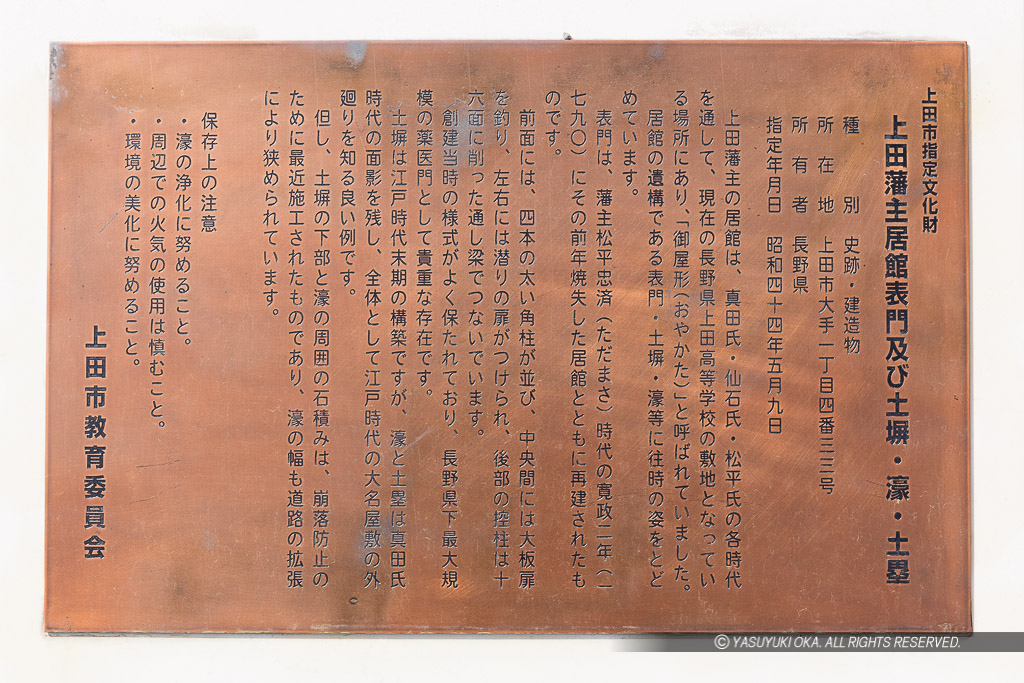 上田市指定文化財
上田藩主居館表門及び土塀・濠・土塁
種別　史跡・建造物
所在地　上田市大手一丁目四番三二号
所有者　長野県
指定年月日　昭和四十四年五月九日
上田藩主の居館は、真田氏・仙石氏・松平氏の各時代
を通して、現在の長野県上田高等学校の敷地となってい
る場所にあり、「御屋形（おやかた）」と呼ばれていました。
居館の遺構である表門・土塀・濠等に往時の姿をとど
めています。
表門は、藩主松平忠済（ただまさ）時代の寛政二年（一
七九〇）にその前年焼失した居館とともに再建されたも
のです。
前面には、四本の太い角柱が並び、中央間には大板扉
を釣り、左右には潜りの扉がつけられ、後部の控柱は十
六面に削った通し梁でつないでいます。
創建当時の様式がよく保たれており、長野県下最大規
模の薬医門として貴重な存在です。
土塀は江戸時代末期の構築ですが、濠と土塁は真田氏
時代の面影を残し、全体として江戸時代の大名屋敷の外
廻りを知る良い例です。
但し、土塀の下部と濠の周囲の石積みは、崩落防止の
ために最近施工されたものであり、濠の幅も道路の拡張
により狭められています。
保存上の注意
・濠の浄化に努めること。
・周辺での火気の使用は慎むこと。
・環境の美化に努めること。
上田市教育委員会
© YASUYUKI OKA. ALL RIGHTS RESERVED.